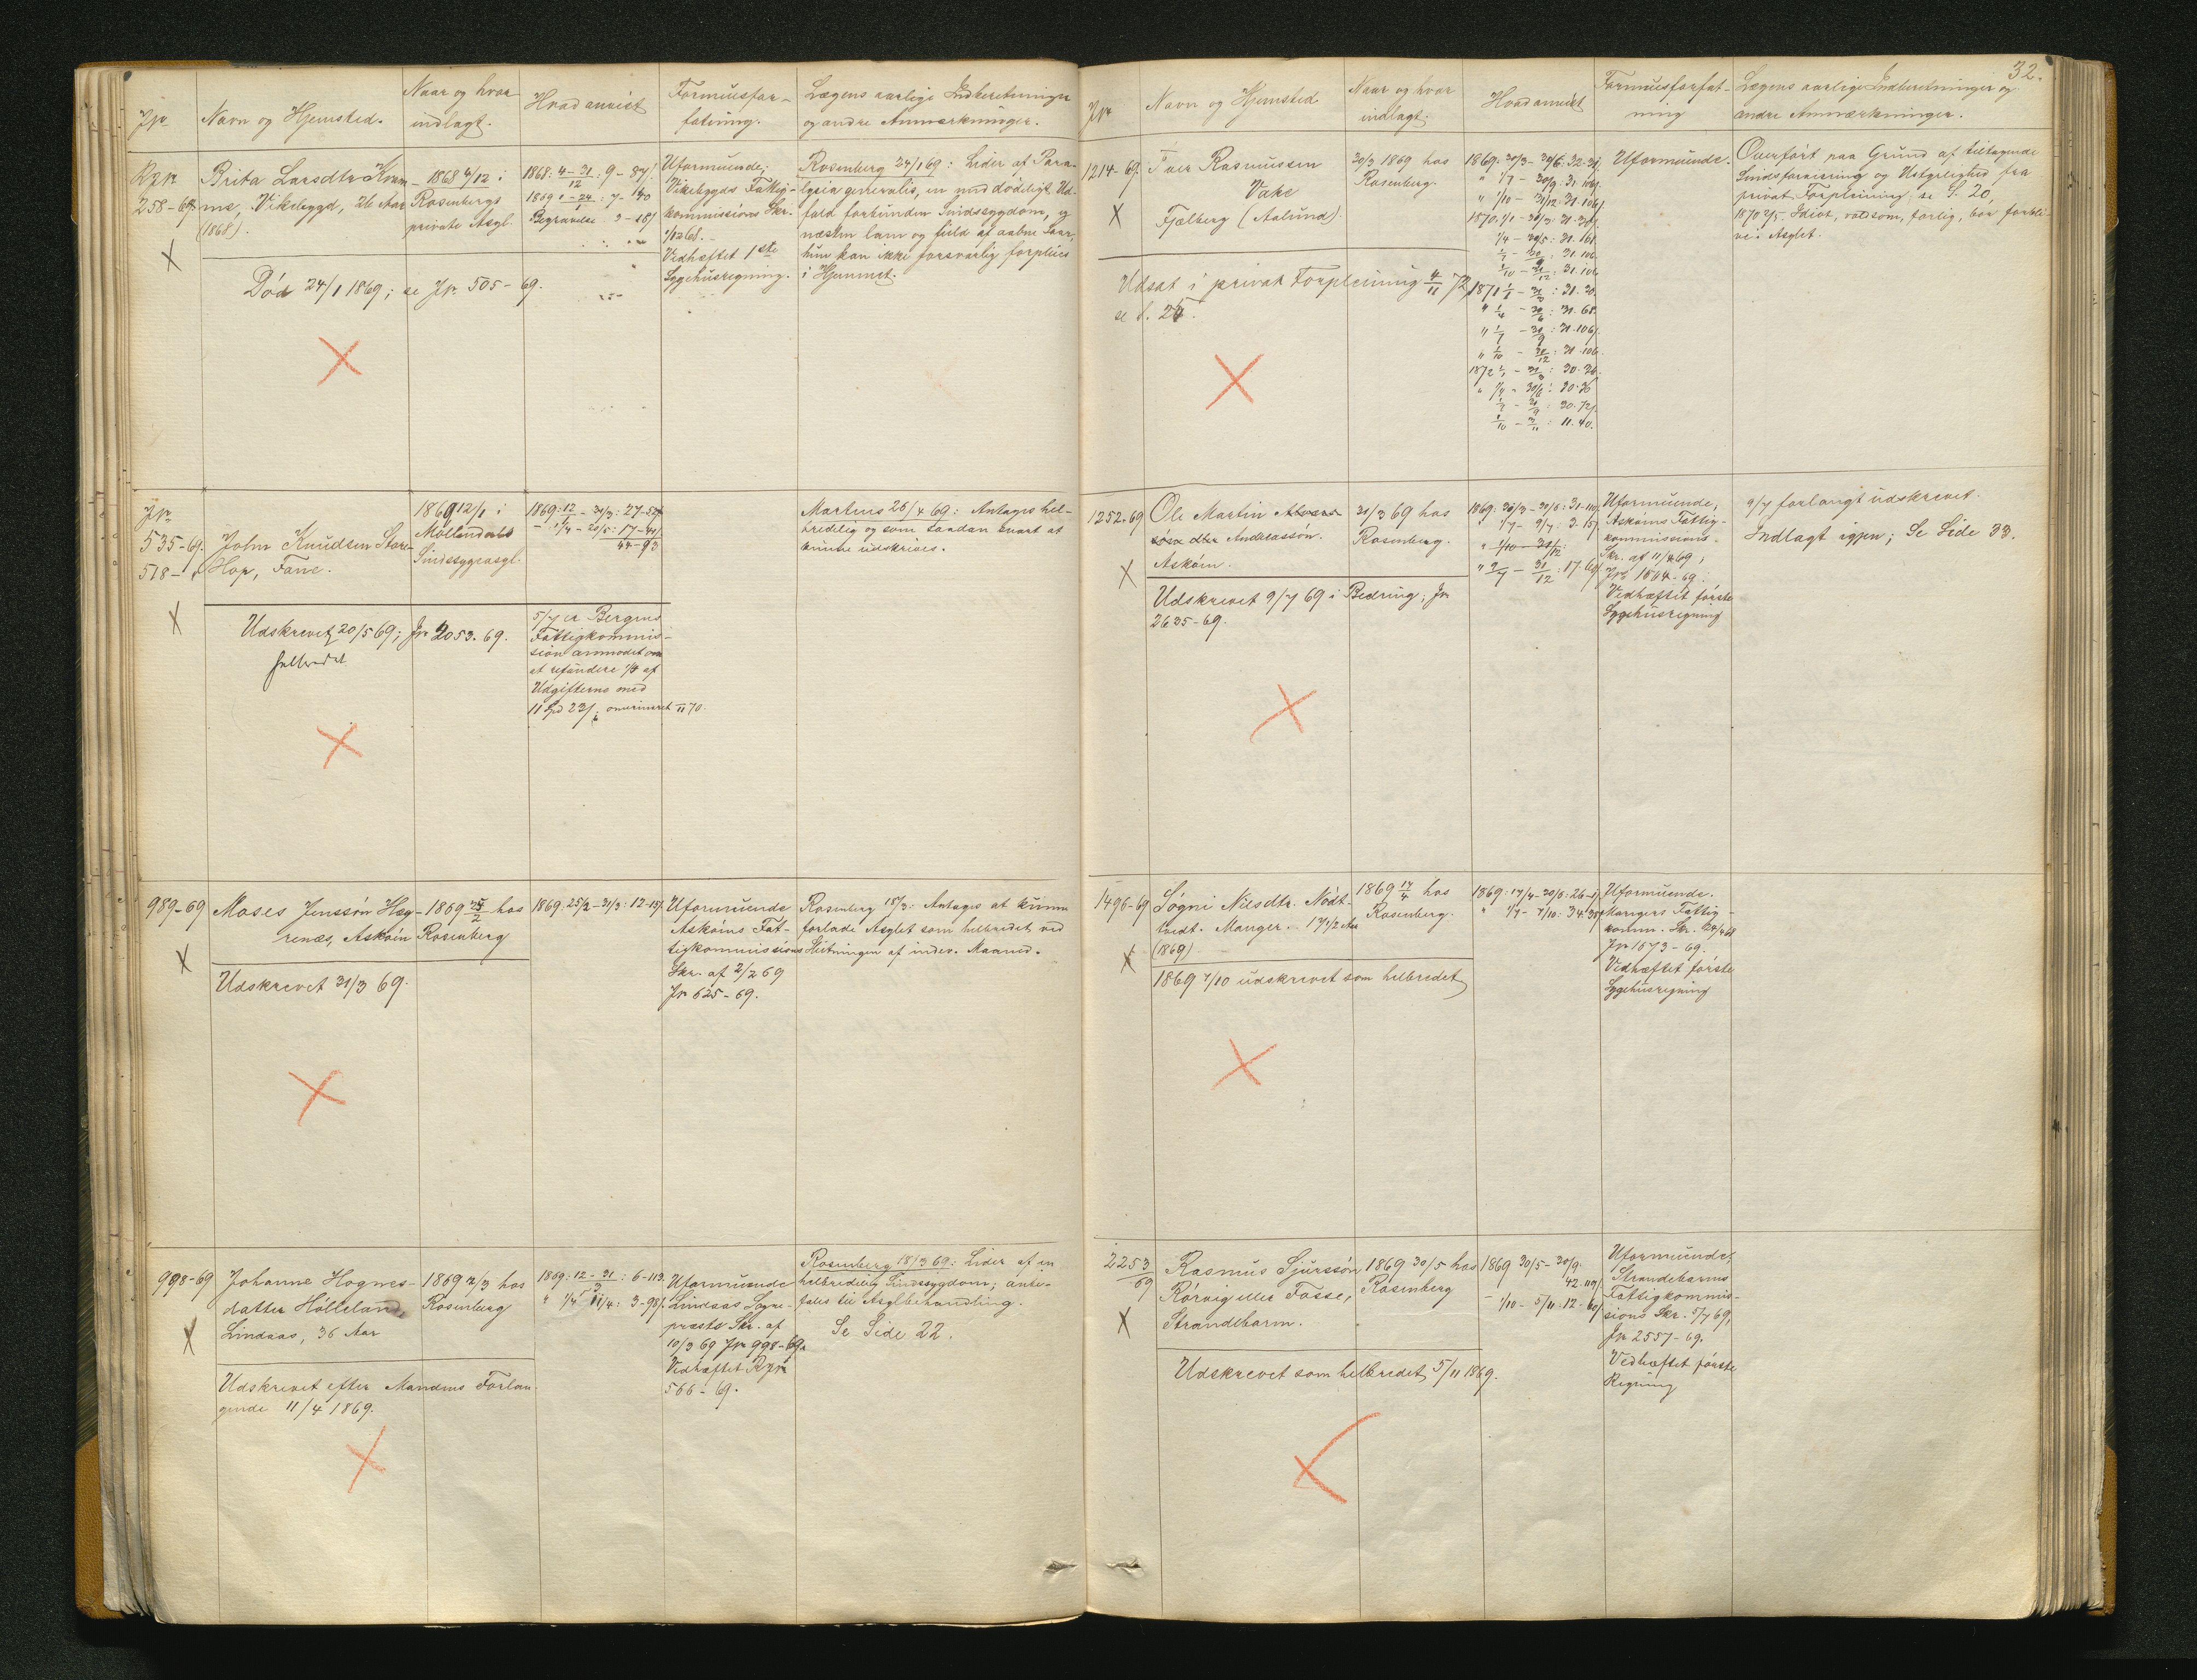 Jnr
Navn og Hjemsted.
Naar og hvor
indlagt.
Hvad anvist
Formuesfor-
fatning.
Lægens aarlige Indberetninger
og andre Anmærkninger.
Rgnr
258-69
Brita Larsdtr Kvam-
me, Vikebygd, 26 Aar
(1868).
1868 4/12 i
Rosenbergs
private Asyl.
1868: 4-31/12: 9-87/.
1869 1-24/1: 7-40
Begravelse
Uformuende;
Vikebygds Fattig-
kommissions Skr.
1/12 68.
Vedhæftet 1ste
Sygehusregning.
Rosenberg 24/1 69: Lider af Para-
lysia generalis, en med dødeligt Ud-
fald forbunden Sindssygdom, og
næsten lam og fuld af aabne Saar,
hun kan ikke forsvarlig forpleies
i Hjemmet.
Død 24/1 1869; se Jnr. 505-69.
Jnr
535-69.
518-"
John Knudsen Store-
Hop, Fane.
1869 12/1 i
Møllendals
Sindssygeasyl.
1869: 12/1 - 31/3: 27-52
" 1/4 - 20/5: 17-41/
44-93
Martens 26/4 69: Antages hel-
bredelig og som saadan snart at
kunne udskrives.
Udskrevet 20/5 69; Jnr 2053. 69.
helbredet
5/7 er Bergens
Fattigkommis-
sion anmodet om
at refundere 1/4 af
Udgifterne med
11 Spd 23/;
989-69
Moses Jenssøn Hæg-
renæs, Askøin
1869 25/2 hos
Rosenberg
1869: 25/2-31/3: 12-15/.
Uformuende
Askøins Fat-
tigkommissions
Skr. af 2/2 69
Jnr 625-69.
Rosenberg 18/3: Antages at kunne
forlade Asylet som helbredet ved
Slutningen af indev. Maaned.
Udskrevet 31/3 69.
998-69
Johanne Hognes-
datter Hølleland
Lindaas, 36 Aar
1869 12/3 hos
Rosenberg
1869: 12-31/3: 6-113.
" 1/4 - 11/4: 3-98/.
Uformuende
Lindaas Sogne-
præsts Skr. af
10/3 69 Jnr 998-69.
Vedhæftet Rgnr
566-69.
Rosenberg 18/3 69: Lider af en
helbredelig Sindssygdom; anbe-
fales til Asylbehandling.
Se Side 22.
Udskrevet efter Mandens Forlan-
gende 11/4 1869.
32.
Jnr
Navn og Hjemsted
Naar og hvor
indlagt.
Hvad anvist
Formuesforfat-
ning
Lægens aarlige Indberetninger og
andre Anmærkninger.
1214-69.
Iver Rasmussen
Vake
Fjelberg (Aalund).
30/3 1869 hos
Rosenberg.
1869: 30/3 - 30/6: 32.31
" 1/7 - 30/9: 31.106/.
" 1/10 - 31/12: 31.106/
1870: 1/1 - 31/3: 31.30/.
1/4 - 30/5: 31.16/.
1/7 - 30/9: 31.106
1/10 - 31/12: 31.106
1871 1/1 - 31/3: 31.30.
" 1/4 - 30/6: 31.68.
" 1/7 - 30/9: 31.106/.
" 1/10 - 31/12: 31.106.
1872 1/1 - 31/3: 30.36.
" 1/4 - 30/6: 30.36
1/7 - 30/9: 30.72/.
1/10 - 4/11: 11.40.
Uformuende.
Overført paa Grund af tiltagende
Sindsforvirring og Ustyrlighed fra
privat Forpleining, se S. 20,
1870 2/5. Idiot, voldsom, farlig, bør forbli-
ve i Asylet.
Udsat i privat Forpleining 4/11 72,
se S. 25.
1252-69
Ole Martin
dtr Anderassøn.
Askøin.
30/3 69 hos
Rosenberg.
1869: 30/3 - 30/6: 31-110/.
" 1/7 - 9/7: 3-15/.
" 1/10 - 31/12:
" 9/7 - 31/12: 17-69/.
Uformuende,
Askøins Fattig-
kommissions-
Skr. af 11/4 69;
Jnr 1504-69.
Vedhæftet første
Sygehusregning
9/7 forlangt udskrevet.
Indlagt igjen; Se Side 33.
Udskrevet 9/7 69 i Bedring; Jnr
2635-69.
1496-69
Søgni Nilsdtr. Nødt-
vedt. Manger. 17 1/2 Aar
(1869)
1869 17/4 hos
Rosenberg.
1869: 17/4 - 30/6: 26-1/.
" 1/7 - 7/10: 34.38/.
Uformuende.
Mangers Fattig-
komm. Skr. 24/4 69
Jnr 1673-69.
Vedhæftet første
Sygehusregning
1869 7/10 udskrevet som helbredet
2253/69
Rasmus Sjurssøn
Rørvig eller Fosse,
Strandebarm.
1869 30/5 hos
Rosenberg
1869 30/5 - 30/9.
42.119/.
" 1/10 - 5/11: 12-60/
Uformuende,
Strandebarms
Fattigkommis-
sions Skr. 5/7 69,
Jnr 2557-69.
Vedhæftet første
Regning
Udskrevet som helbredet 5/11 1869.